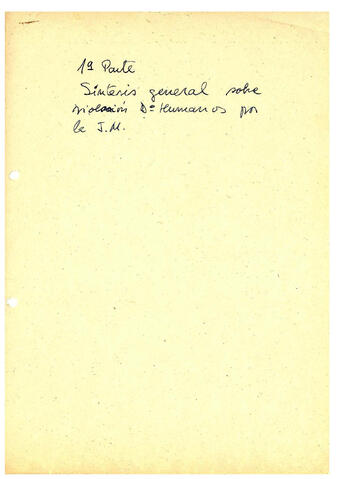 1ª Parte
Síntesis general sobre
violación Dº Humanos por
la J.M.